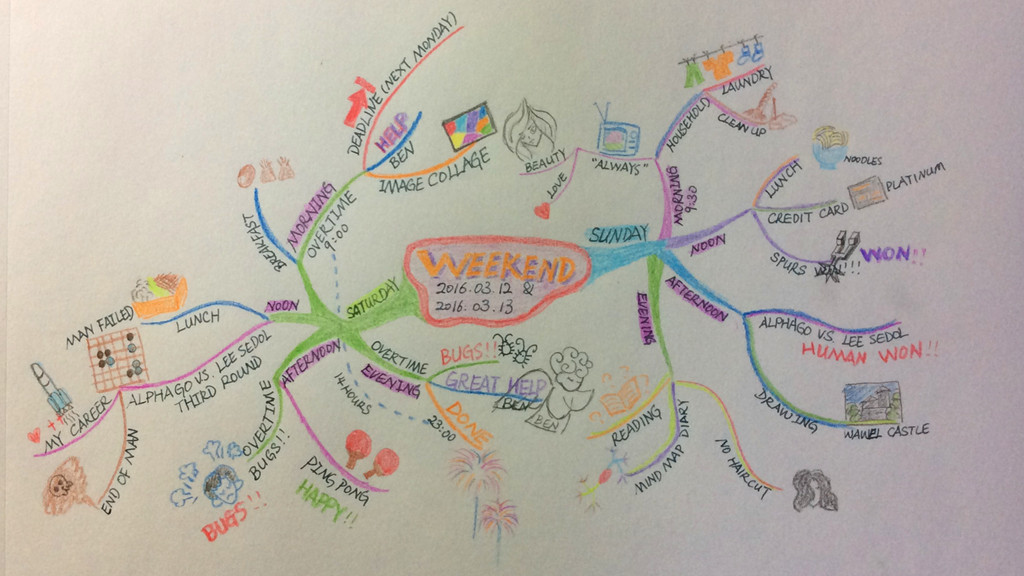 WEEKEND
2016.03.12 &
2016.03.13
SATURDAY
MORNING
OVERTIME
9:00
BREAKFAST
DEADLINE (NEXT MONDAY)
HELP
BEN
IMAGE COLLAGE
NOON
LUNCH
ALPHAGO VS. LEE SEDOL
THIRD ROUND
MAN FAILED
MY CAREER
END OF MAN
AFTERNOON
OVERTIME
BUGS!!
BUGS!!
PING PONG
HAPPY!!
14 HOURS
EVENING
OVERTIME
BUGS!!
GREAT HELP
BEN
BEN
DONE
23:00
SUNDAY
MORNING
9:30
HOUSEHOLD
LAUNDRY
CLEAN UP
"ALWAYS"
BEAUTY
LOVE
NOON
LUNCH
NOODLES
CREDIT CARD
PLATINUM
SPURS
WON!!
AFTERNOON
ALPHAGO VS. LEE SEDOL
HUMAN WON!!
DRAWING
WAWEL CASTLE
EVENING
READING
MIND MAP DIARY
NO HAIRCUT